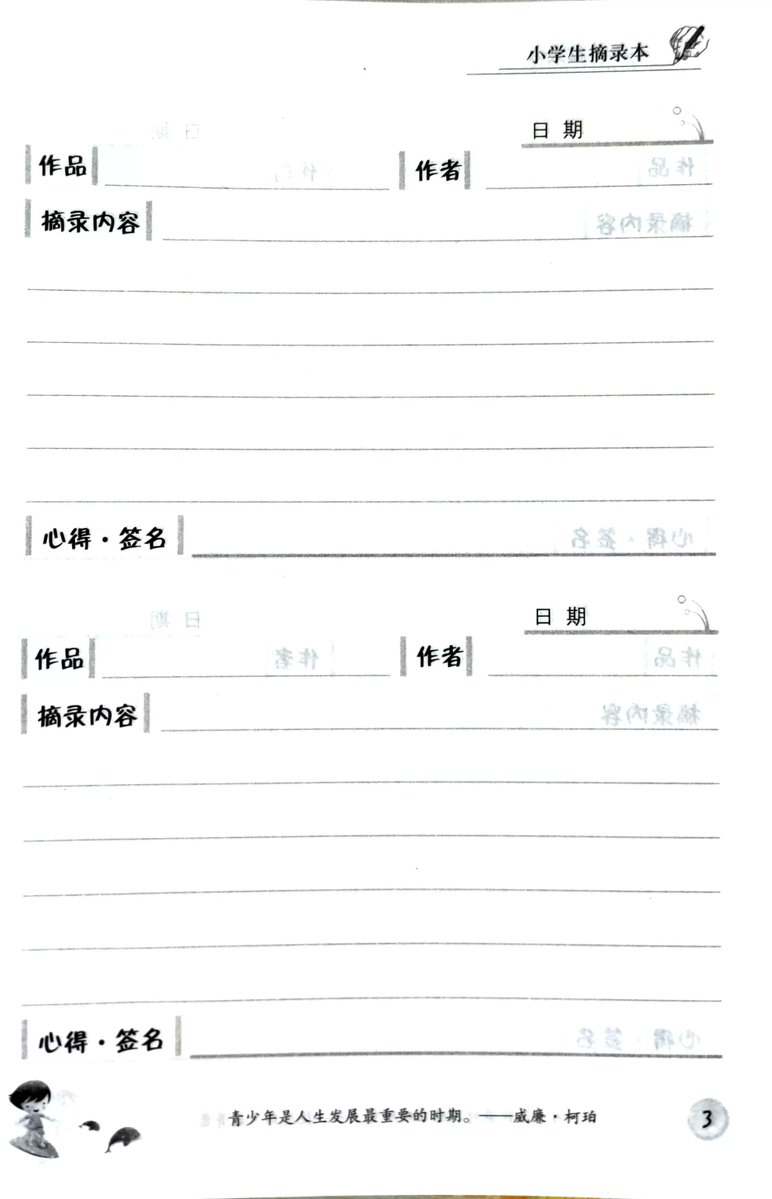 小学生摘录本
日 期
作品 作者
摘录内容
心得·签名
日 期
作品 作者
摘录内容
心得·签名
青少年是人生发展最重要的时期。——威廉·柯珀
3